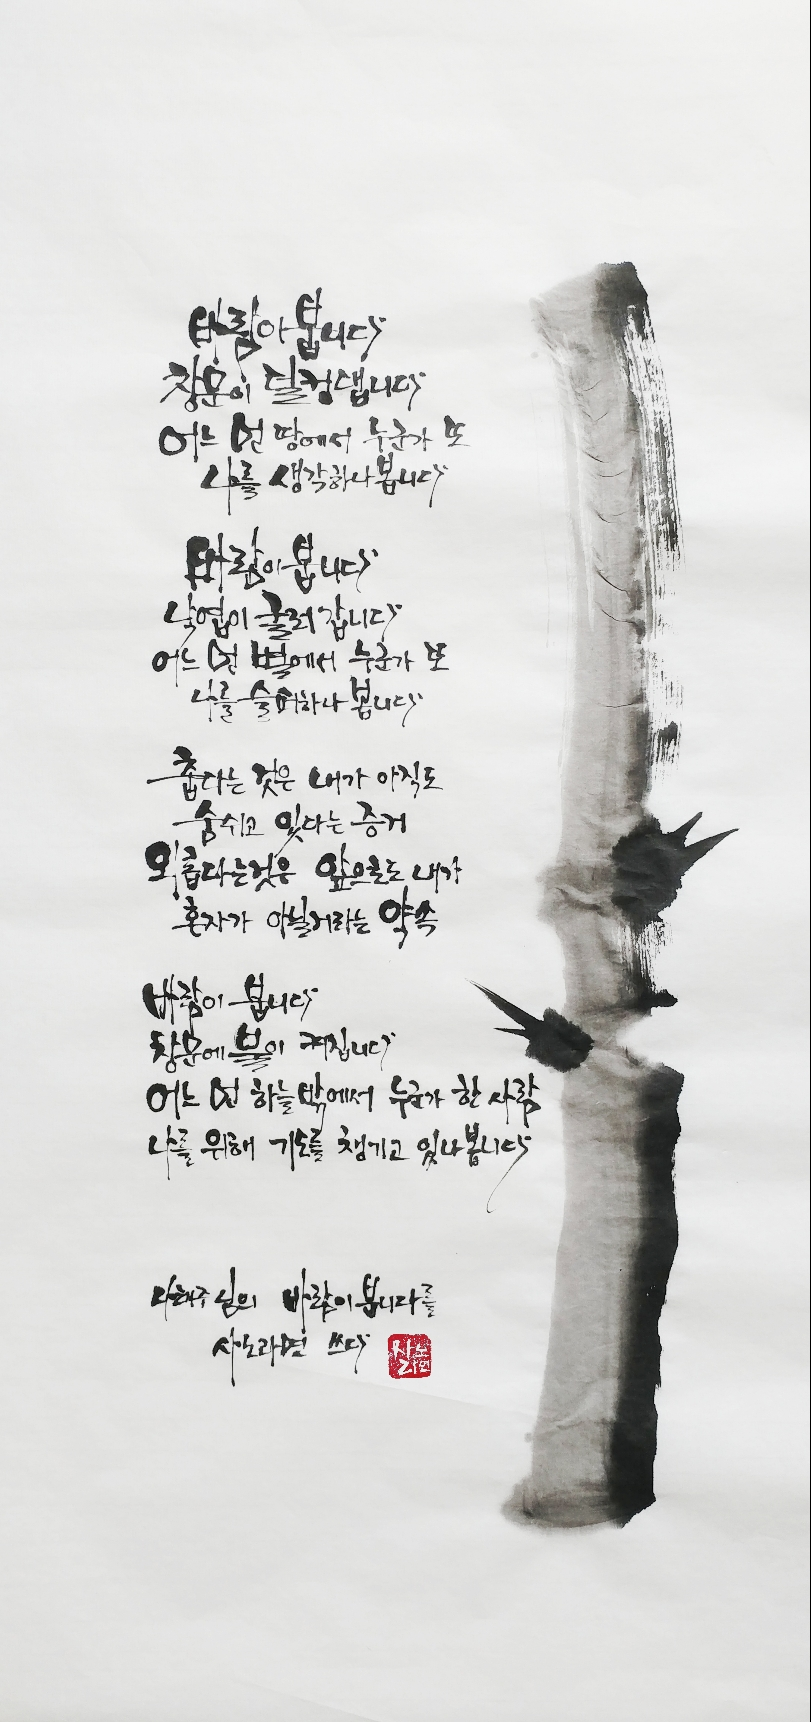 바람이 붑니다
창문이 덜컹댑니다
어느 먼 땅에서 누군가 또
나를 생각하나 봅니다
바람이 붑니다
낙엽이 굴러갑니다
어느 먼 별에서 누군가 또
나를 슬퍼하나 봅니다
춥다는 것은 내가 아직도
숨쉬고 있다는 증거
외롭다는 것은 앞으로도 내가
혼자가 아닐거라는 약속
바람이 붑니다
창문에 불이 켜집니다
어느 먼 하늘 밖에서 누군가 한 사람
나를 위해 기도를 챙기고 있나 봅니다
나태주님의 바람이 붑니다를
사노라면 쓰다
사노라면